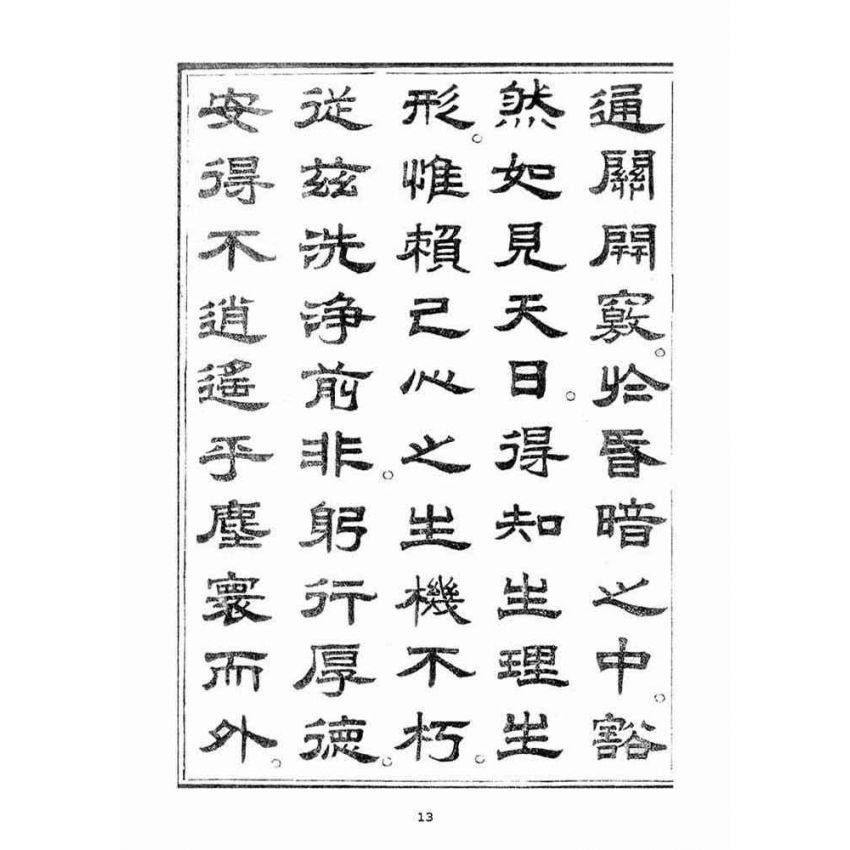 通關開竅。於昏暗之中。豁
然如見天日。得知生理生
形。惟賴己心之生機不朽。
從茲洗淨前非。躬行厚德。
安得不逍遙乎塵寰而外。
13